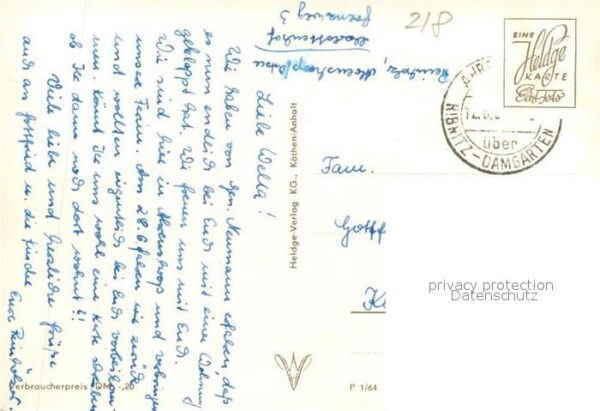 2/8
EINE
Heldge
KARTE
Echt Foto
AHR
12.6.6
über
RIBNITZ-DAMGARTEN
Reinholz, Ahrenshoop/Ostsee
3
Liebe Wella!
Wir haben von Gen. Neumann erfahren, daß
es nun endlich bei Euch mit einer Wohnung
geklappt hat. Wir freuen uns mit Euch.
Wir sind hier in Ahrenshoop und verbringen
unsere Ferien. Am 28.6. fahren wir zurück
und wollten eigentlich bei Euch vorbeikommen.
Könnt Ihr uns wohl eine Karte schreiben
ob Ihr dann noch dort wohnt?!
Viele liebe und herzliche Grüße
auch an Gottfried u. die Kinder
Eure Reinholz
Heldge-Verlag KG., Köthen/Anhalt
Fam.
Gottf
K
privacy protection
Datenschutz
Verbraucherpreis DM -,20
P 1/64